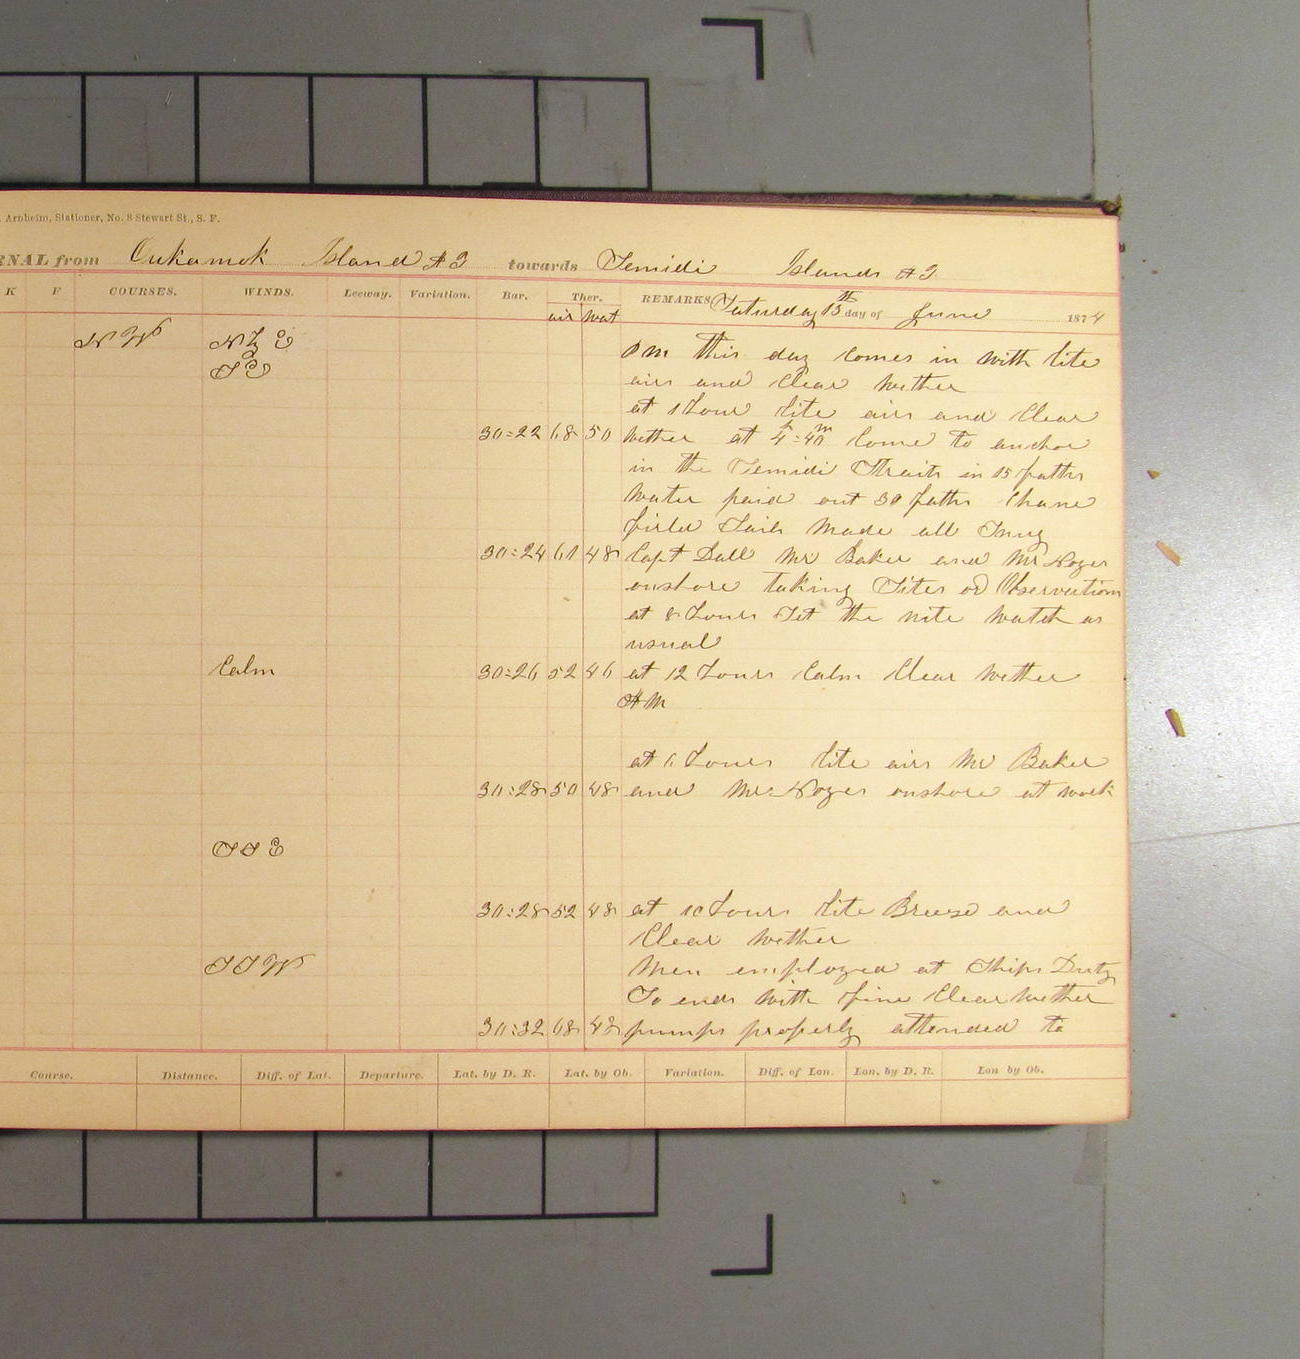 Arnheim, Stationer, No. 8 Stewart St., S. F.
RNAL from Oukamok Island A T towards Semidi Islands A T
K F COURSES. WINDS. Leeway. Variation. Bar. Ther. REMARKS Saturday 13th day of June 1874
air wat
N W N E
S E P m this day comes in with lite
airs and Clear wether
at 1 hour lite airs and Clear
30=22 68 50 wether at 4h=40m Come to anchor
in the Semidi Straits in 15 faths
water paid out 30 faths Chane
firled Sails made all Snug
30=24 61 48 Capt Dall Mr Baker and Mr Noyes
onshore taking Sites od Observations
at 8 hours Set the nite watch as
usual
Calm 30=26 52 46 at 12 hours Calm Clear wether
A M
at 6 hours lite airs Mr Baker
30=28 50 48 and Mr Noyes onshore at work
S S E
30=28 52 48 at 10 hours lite Breese and
Clear wether
S S W Men employed at Ships Duty
So ends with fine Clear wether
30=32 68 48 pumps properly attended to
Course. Distance. Diff. of Lat. Departure. Lat. by D. R. Lat. by Ob. Variation. Diff. of Lon. Lon. by D. R. Lon by Ob.